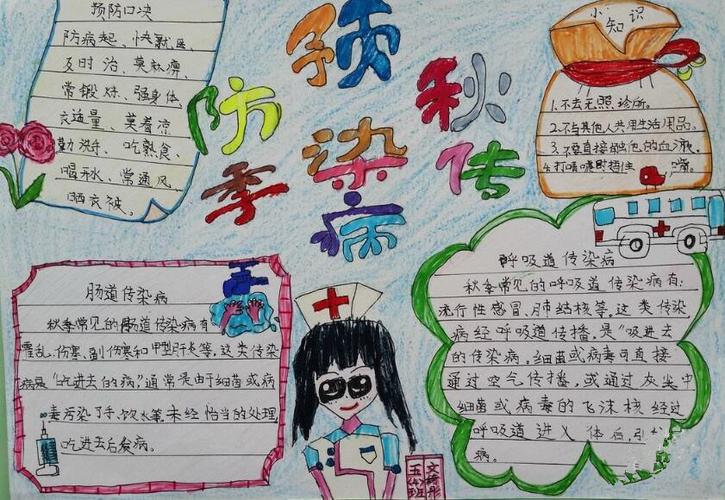 预防口决
防病起、快就医、
及时治、莫
常锻炼、强身体
衣适量、莫着凉
勤洗手、吃熟食、
喝开水、常通风、
晒衣被。
预防秋季传染病
小知识
1.不去无照诊所。
2.不与其他人共用生活用品。
3.不要直接他的血液。
4.打喷嚏时捂住嘴。
肠道传染病
秋季常见的肠道传染病有
霍乱、伤寒、副伤寒和甲型肝炎等。这类传染
病是“吃进去的病”通常是由于细菌或病
毒污染了手、饮水等,未经恰当的处理
吃进去后发病。
呼吸道传染病
秋季常见的呼吸道传染病有:
流行性感冒、肺结核等。这类传染
病经呼吸道传播,是“吸进去
的传染病,细菌或病毒可直接
通过空气传播,或通过灰尘中
细菌或病毒的飞沫核经过
呼吸道进入体后,引
病。
五(4)班